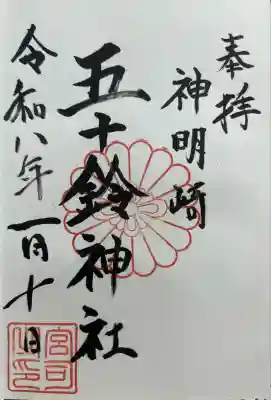 奉拝
神明崎
五十鈴神社
令和八年一月十日
宮司之印